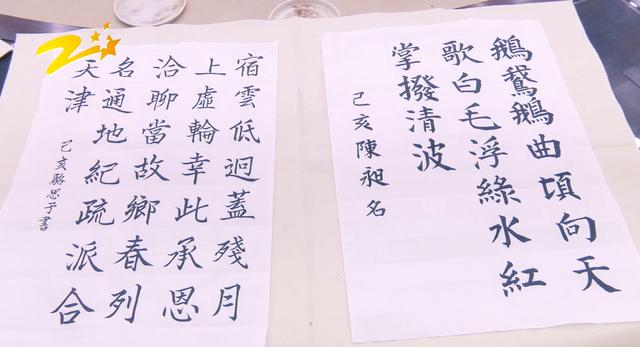 鵝鵞鵝曲頃向天
歌白毛浮綠水紅
掌撥清波
己亥陳昶名
宿雲低迥蓋殘月
上虛輪幸此承恩
洽聊當故鄉春列
名通地紀疏派合
天津
己亥駱思予書